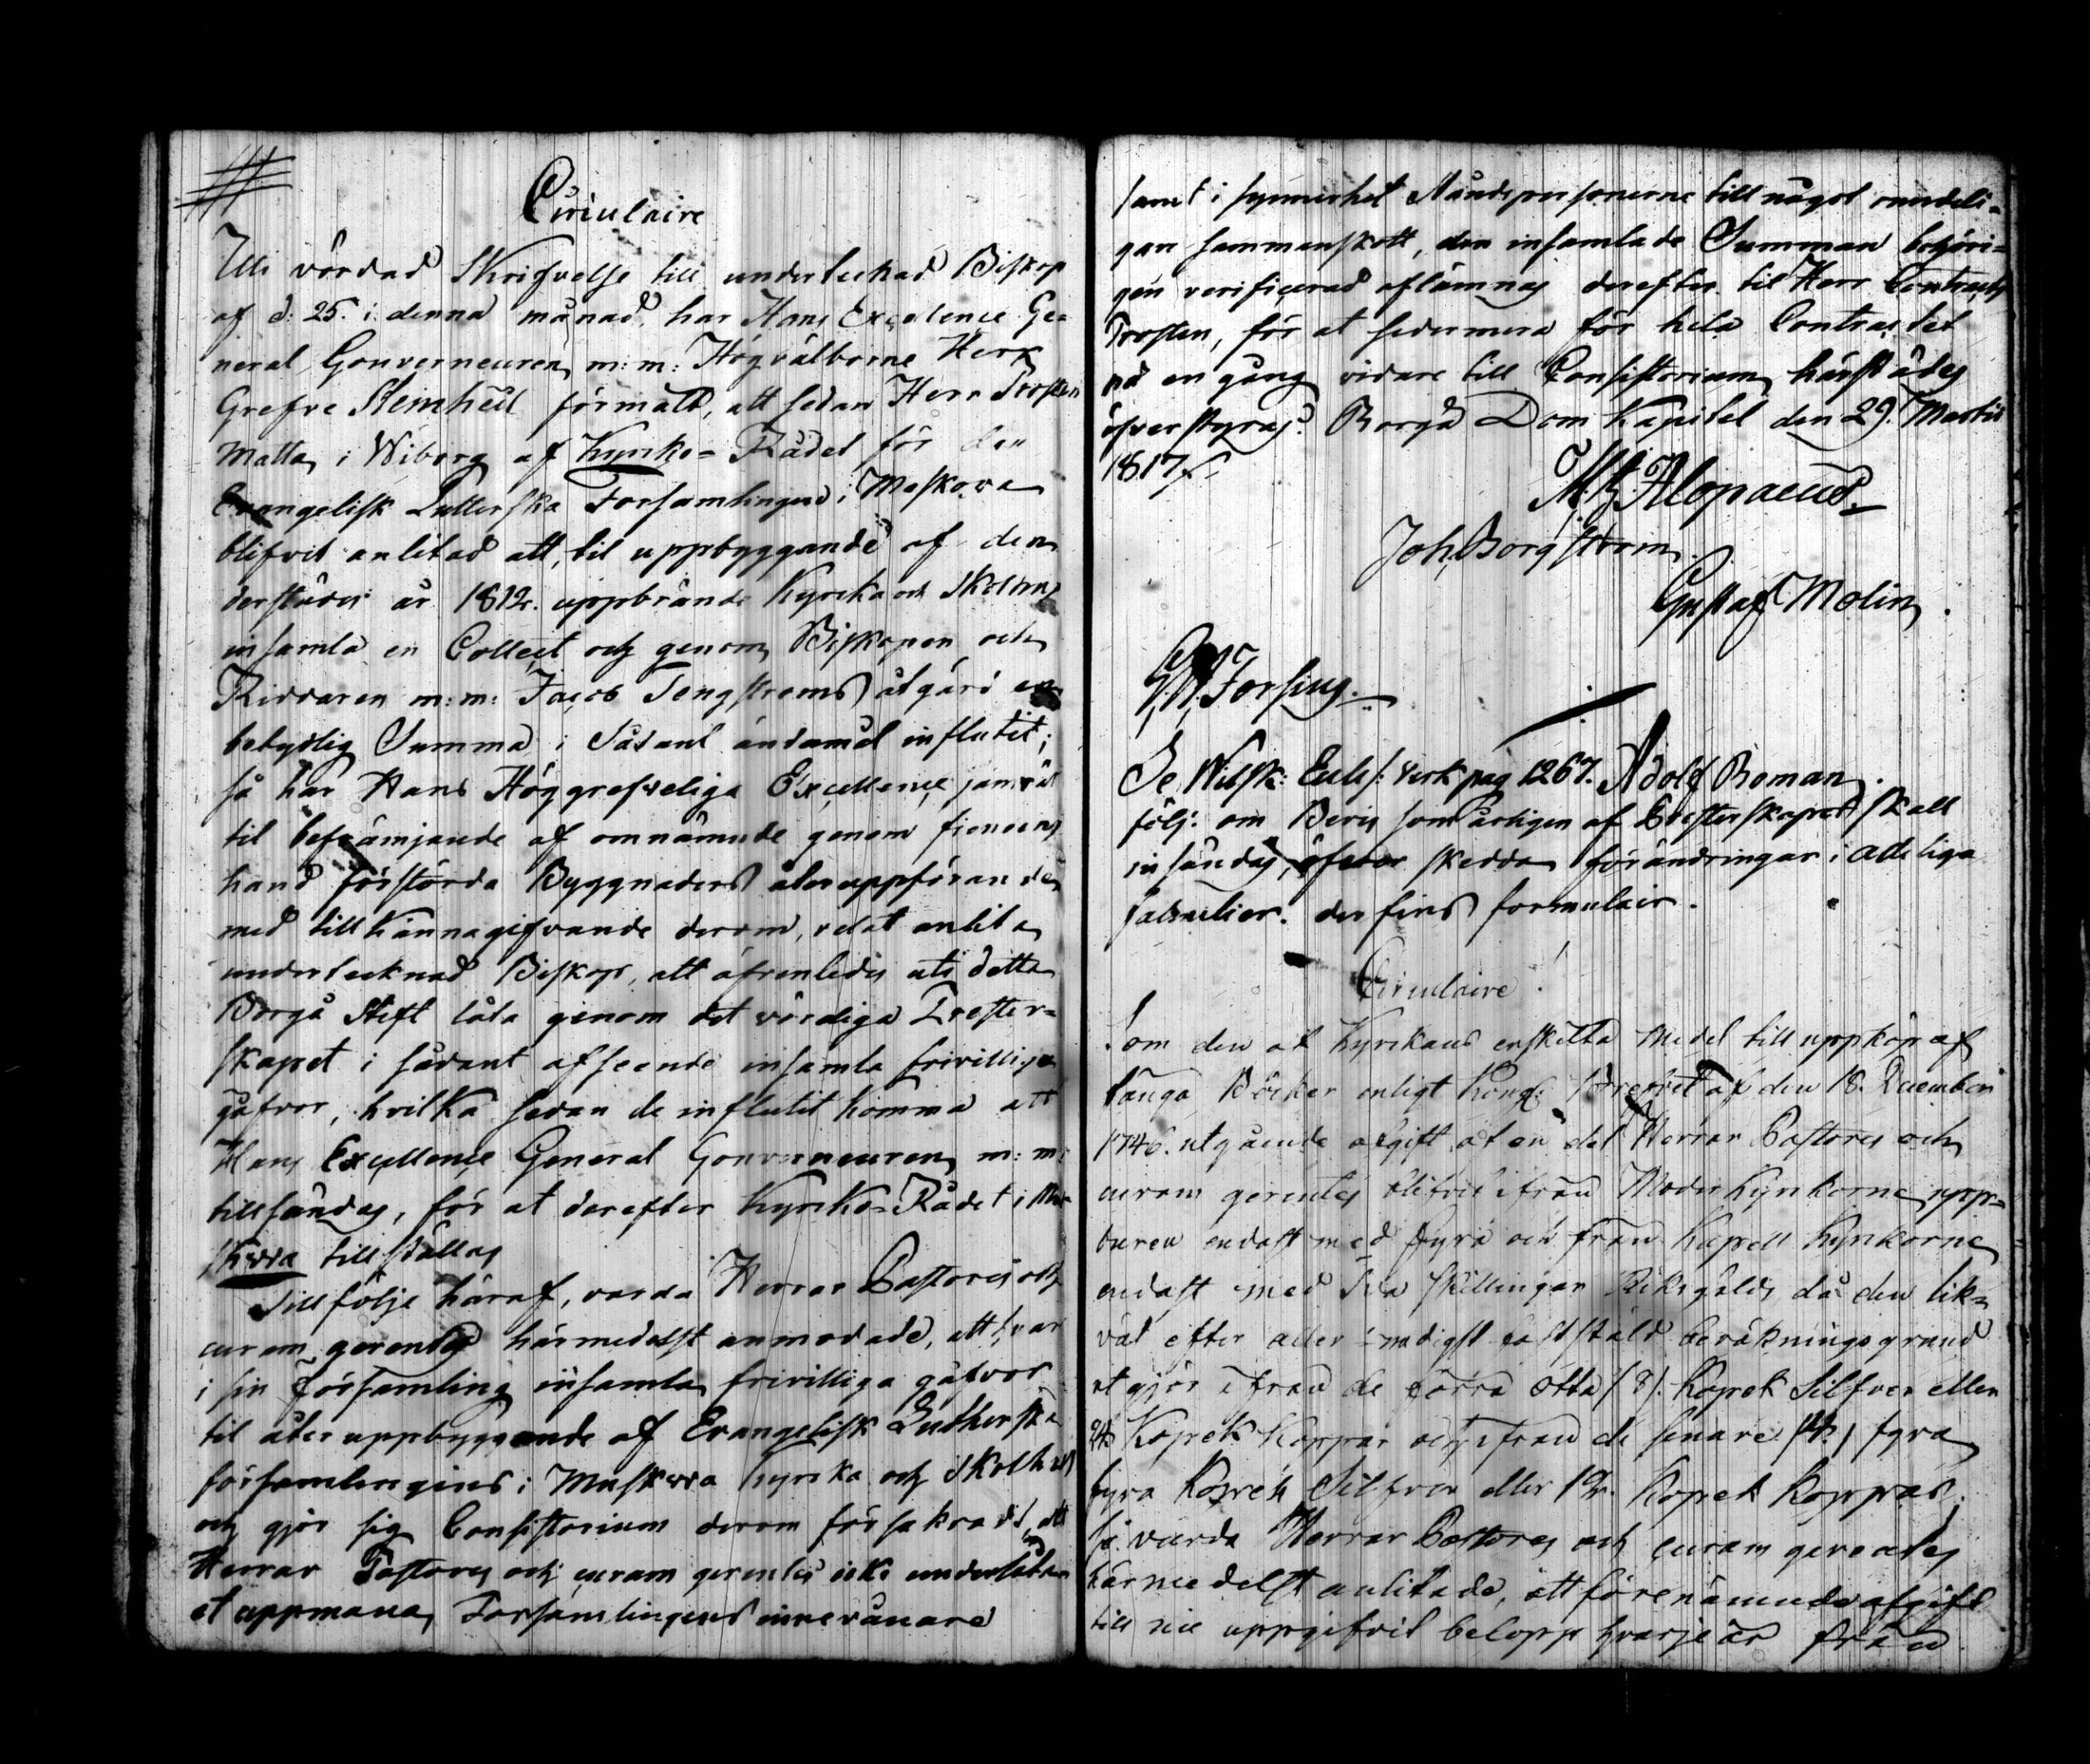 Circulaire
Uti vördad Skrifvelse till undertecknad Biskop
af d: 25. i denna månad, har Hans Excelence Ge=
neral Gouverneuren m: m: Högvälborne Herr
Grefve Steinheil förmält, att sedan Herr Prosten
Matta i Wiborg af Kyrko= Rådet för den
Evangelisk Lutterska Forsamlingen i Moskova
blifvit anlitad att, til uppbyggande af den
derstädes år 1812. uppbrände Kyrka och Skolhus
insamla en Collect och genom Biskopen och
Riddaren m: m: Jacob Tengstroms åtgärd en
betydlig Summa i Sådant ändamål influtit;
så har Hans Höggrefveliga Excellence jämväl
til befrämjande af omnämnde genom fiendens
hand förstörda Byggnaders återuppförande
med tillkännagifvande derom, velat anlita
undertecknad Biskop, att äfvenledes uti detta
Borgå Stift låta genom det vördiga Prester=
skapet i sådant afseende insamla frivilliga
gåfvor, hvilka sedan de influtit komma att
Hans Excellence General Gouverneuren m: m:
tillsändas, för at derefter Kyrko=Rådet i Mo
skova tillställas
Till följe häraf, varda Herrar Pastores och
curam gerentes härmedelst anmodade, att hvar
i sin Församling insamla frivilliga gåfvor
til återuppbyggande af Evangelisk Lutherska
församlingens i Muskova Kyrka och Skolhus
och gjör sig Consistorium derom försäkradt, att
Herrar Pastores och curam gerentes icke underlåta
at uppmana Forsamlingens innevånare
samt i synnerhet Ståndspersonerne till något ömdeli=
gare sammanskott, den insamlade Summan behöri=
gen verificerad aflämnas derefter til Herr Contracts
Prosten, för at sedermera för hela Contractet
på en gång vidare till Consistorium härstädes
öfverstyras. Borgå Dom Kapitel den 29. Martii
1817.
M. Alopaeus.
Joh. Borgström
Gustaf Molin.
G. W. Forsius.
Se Wilsk: Eccles: Verk pag 1267. Adolf Roman.
följ: om Bevis som årligen af Presterskapet skall
insändas, öfver skedda förändringar i adeliga
familier. der fins formulair.
Circulaire
Som den af Kyrkans enskilta Medel till uppköp af
fånga Böcker enligt Kongl: Brefvet af den 18. December
1746. utgående afgift, af en del Herrar Pastores och
curam gerentes blifvit ifrån Moder Kyrkorne upp=
buren endast med fyra och från Kapell Kyrkorne
endast med två Skillingar Riksgälds då den lik=
väl efter aller nådigst fastställd beräkningsgrund
utgjör ifrån de förra otta (8). Kopek Silfver eller
24 Kopek Koppar och ifrån de senare (4.) fyra
fyra Kopek Silfver eller 12. Kopek Koppar;
så varda Herrar Pastores och curam gerentes
härmedelst anlitade, att förenämnde afgift
till nu uppgifvit belopp hvarje år från